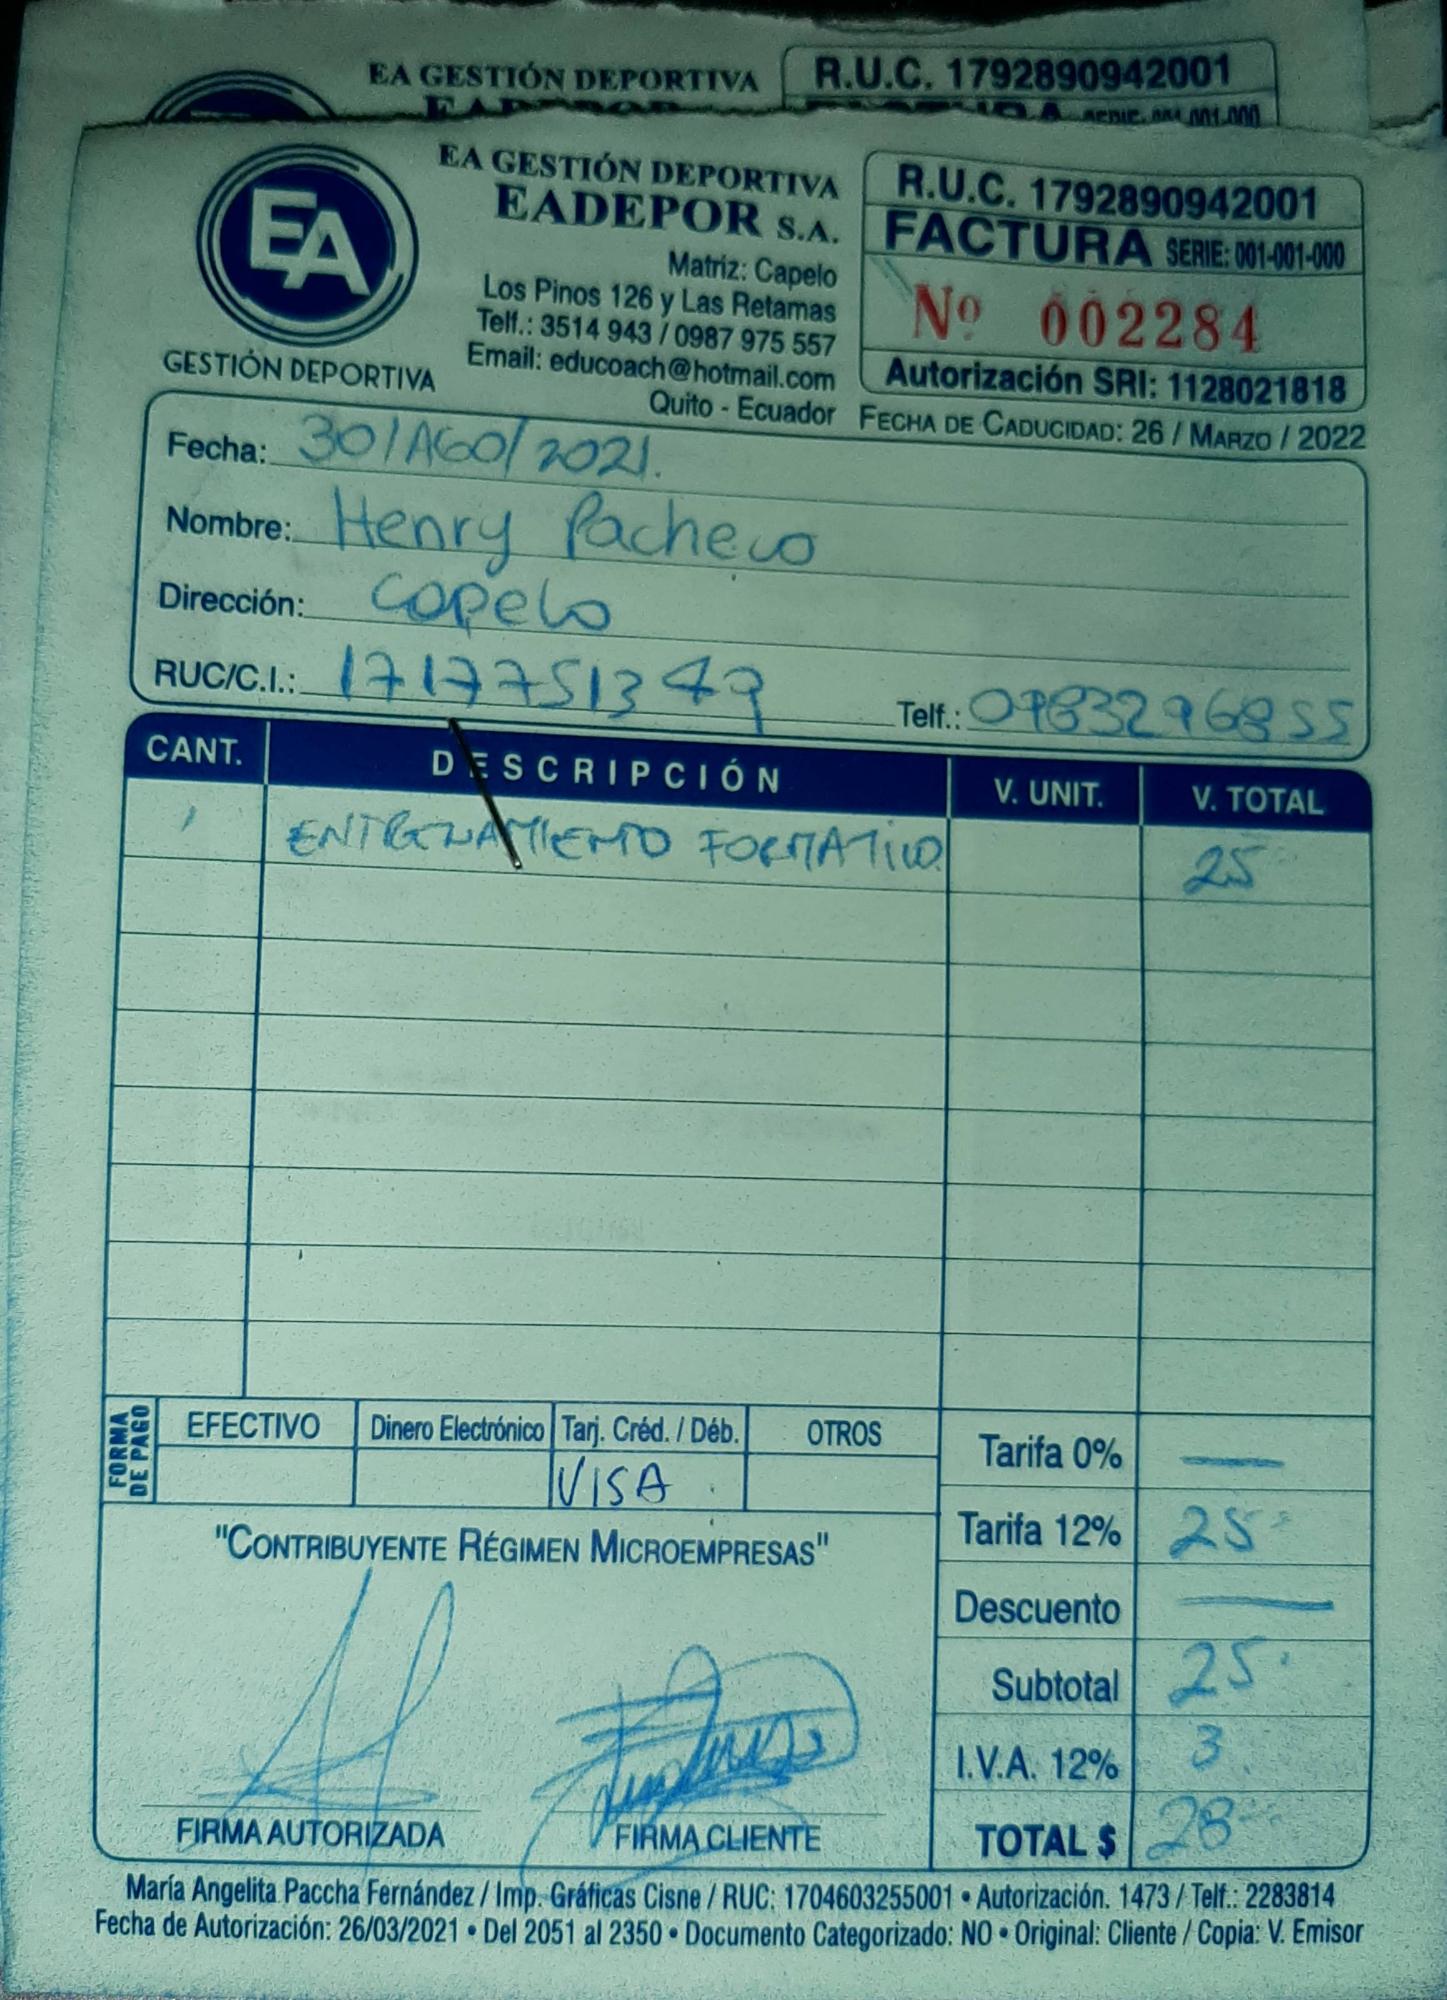 EA GESTIÓN DEPORTIVA
R.U.C. 1792890942001
EA
GESTIÓN DEPORTIVA
EA GESTIÓN DEPORTIVA
EADEPOR S.A.
Matriz: Capelo
Los Pinos 126 y Las Retamas
Telf.: 3514 943 / 0987 975 557
Email: educoach@hotmail.com
Quito - Ecuador
R.U.C. 1792890942001
FACTURA SERIE: 001-001-000
Nº 002284
Autorización SRI: 1128021818
FECHA DE CADUCIDAD: 26 / MARZO / 2022
Fecha: 30/AGO/2021.
Nombre: Henry Pacheco
Dirección: Capelo
RUC/C.I.: 1717751349 Telf.: 0983296855
CANT. DESCRIPCIÓN V. UNIT. V. TOTAL
1 ENTRENAMIENTO FORMATIVO 25
FORMA DE PAGO
EFECTIVO Dinero Electrónico Tarj. Créd. / Déb. OTROS
VISA
Tarifa 0% —
Tarifa 12% 25
Descuento —
Subtotal 25
I.V.A. 12% 3
TOTAL $ 28
"CONTRIBUYENTE RÉGIMEN MICROEMPRESAS"
FIRMA AUTORIZADA FIRMA CLIENTE
María Angelita Paccha Fernández / Imp. Gráficas Cisne / RUC: 1704603255001 • Autorización. 1473 / Telf.: 2283814
Fecha de Autorización: 26/03/2021 • Del 2051 al 2350 • Documento Categorizado: NO • Original: Cliente / Copia: V. Emisor